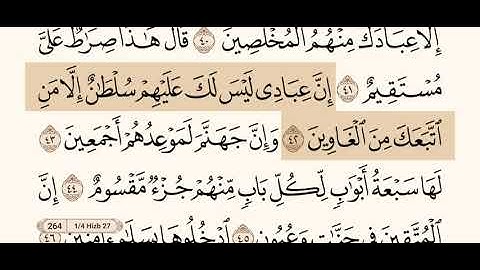 إِلَّا عِبَادَكَ مِنْهُمُ الْمُخْلَصِينَ ٤٠ قَالَ هَٰذَا صِرَٰطٌ عَلَىَّ
مُسْتَقِيمٌ ٤١ إِنَّ عِبَادِى لَيْسَ لَكَ عَلَيْهِمْ سُلْطَٰنٌ إِلَّا مَنِ
ٱتَّبَعَكَ مِنَ ٱلْغَاوِينَ ٤٢ وَإِنَّ جَهَنَّمَ لَمَوْعِدُهُمْ أَجْمَعِينَ ٤٣
لَهَا سَبْعَةُ أَبْوَٰبٍ لِّكُلِّ بَابٍ مِّنْهُمْ جُزْءٌ مَّقْسُومٌ ٤٤ إِنَّ
ٱلْمُتَّقِينَ فِى جَنَّٰتٍ وَعُيُونٍ ٤٥ ٱدْخُلُوهَا بِسَلَٰمٍ ءَامِنِينَ ٤٦
264 1/4 Hizb 27